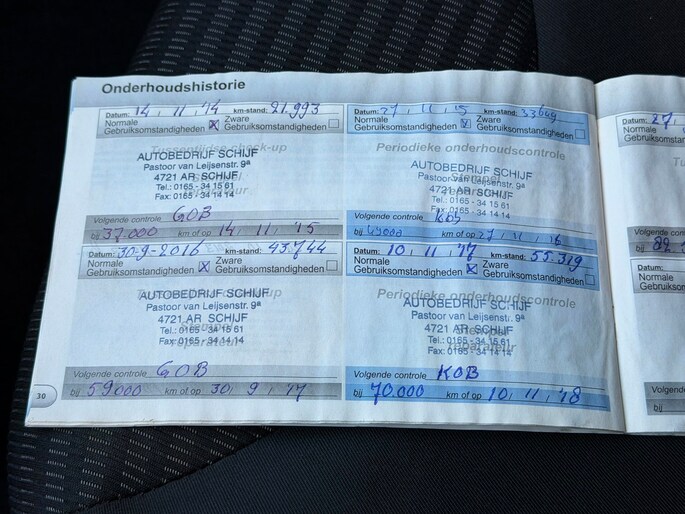 Onderhoudshistorie
Datum: 14 , 11 , '14 km-stand: 21.993
Normale Gebruiksomstandigheden Zware Gebruiksomstandigheden
Tussentijdse check-up
AUTOBEDRIJF SCHIJF
Pastoor van Leijsenstr. 9ª
4721 AR SCHIJF
Tel.: 0165 - 34 15 61
Fax: 0165 - 34 14 14
Volgende controle GOB
bij 37.000 km of op 14 , 11 , '15
Datum: 27 , 11 , 15 km-stand: 33649
Normale Gebruiksomstandigheden Zware Gebruiksomstandigheden
Periodieke onderhoudscontrole
Stempel
AUTOBEDRIJF SCHIJF
Pastoor van Leijsenstr. 9ª
4721 AR SCHIJF
Tel.: 0165 - 34 15 61
Fax: 0165 - 34 14 14
Volgende controle
bij km of op 27 , 11 , 16
Datum: 30-9-2016 km-stand: 43.744
Normale Gebruiksomstandigheden Zware Gebruiksomstandigheden
AUTOBEDRIJF SCHIJF
Pastoor van Leijsenstr. 9ª
4721 AR SCHIJF
Tel.: 0165 - 34 15 61
Fax: 0165 - 34 14 14
Volgende controle GOB
bij 59.000 km of op 30 , 9 , '17
Datum: 10 , 11 , '17 km-stand: 55.319
Normale Gebruiksomstandigheden Zware Gebruiksomstandigheden
Periodieke onderhoudscontrole
Stempel
reparateur
AUTOBEDRIJF SCHIJF
Pastoor van Leijsenstr. 9ª
4721 AR SCHIJF
Tel.: 0165 - 34 15 61
Fax: 0165 - 34 14 14
Volgende controle KOB
bij 70.000 km of op 10 , 11 , '18
30
Datum: 27
Normale
bij
Datum:
Normale
bij